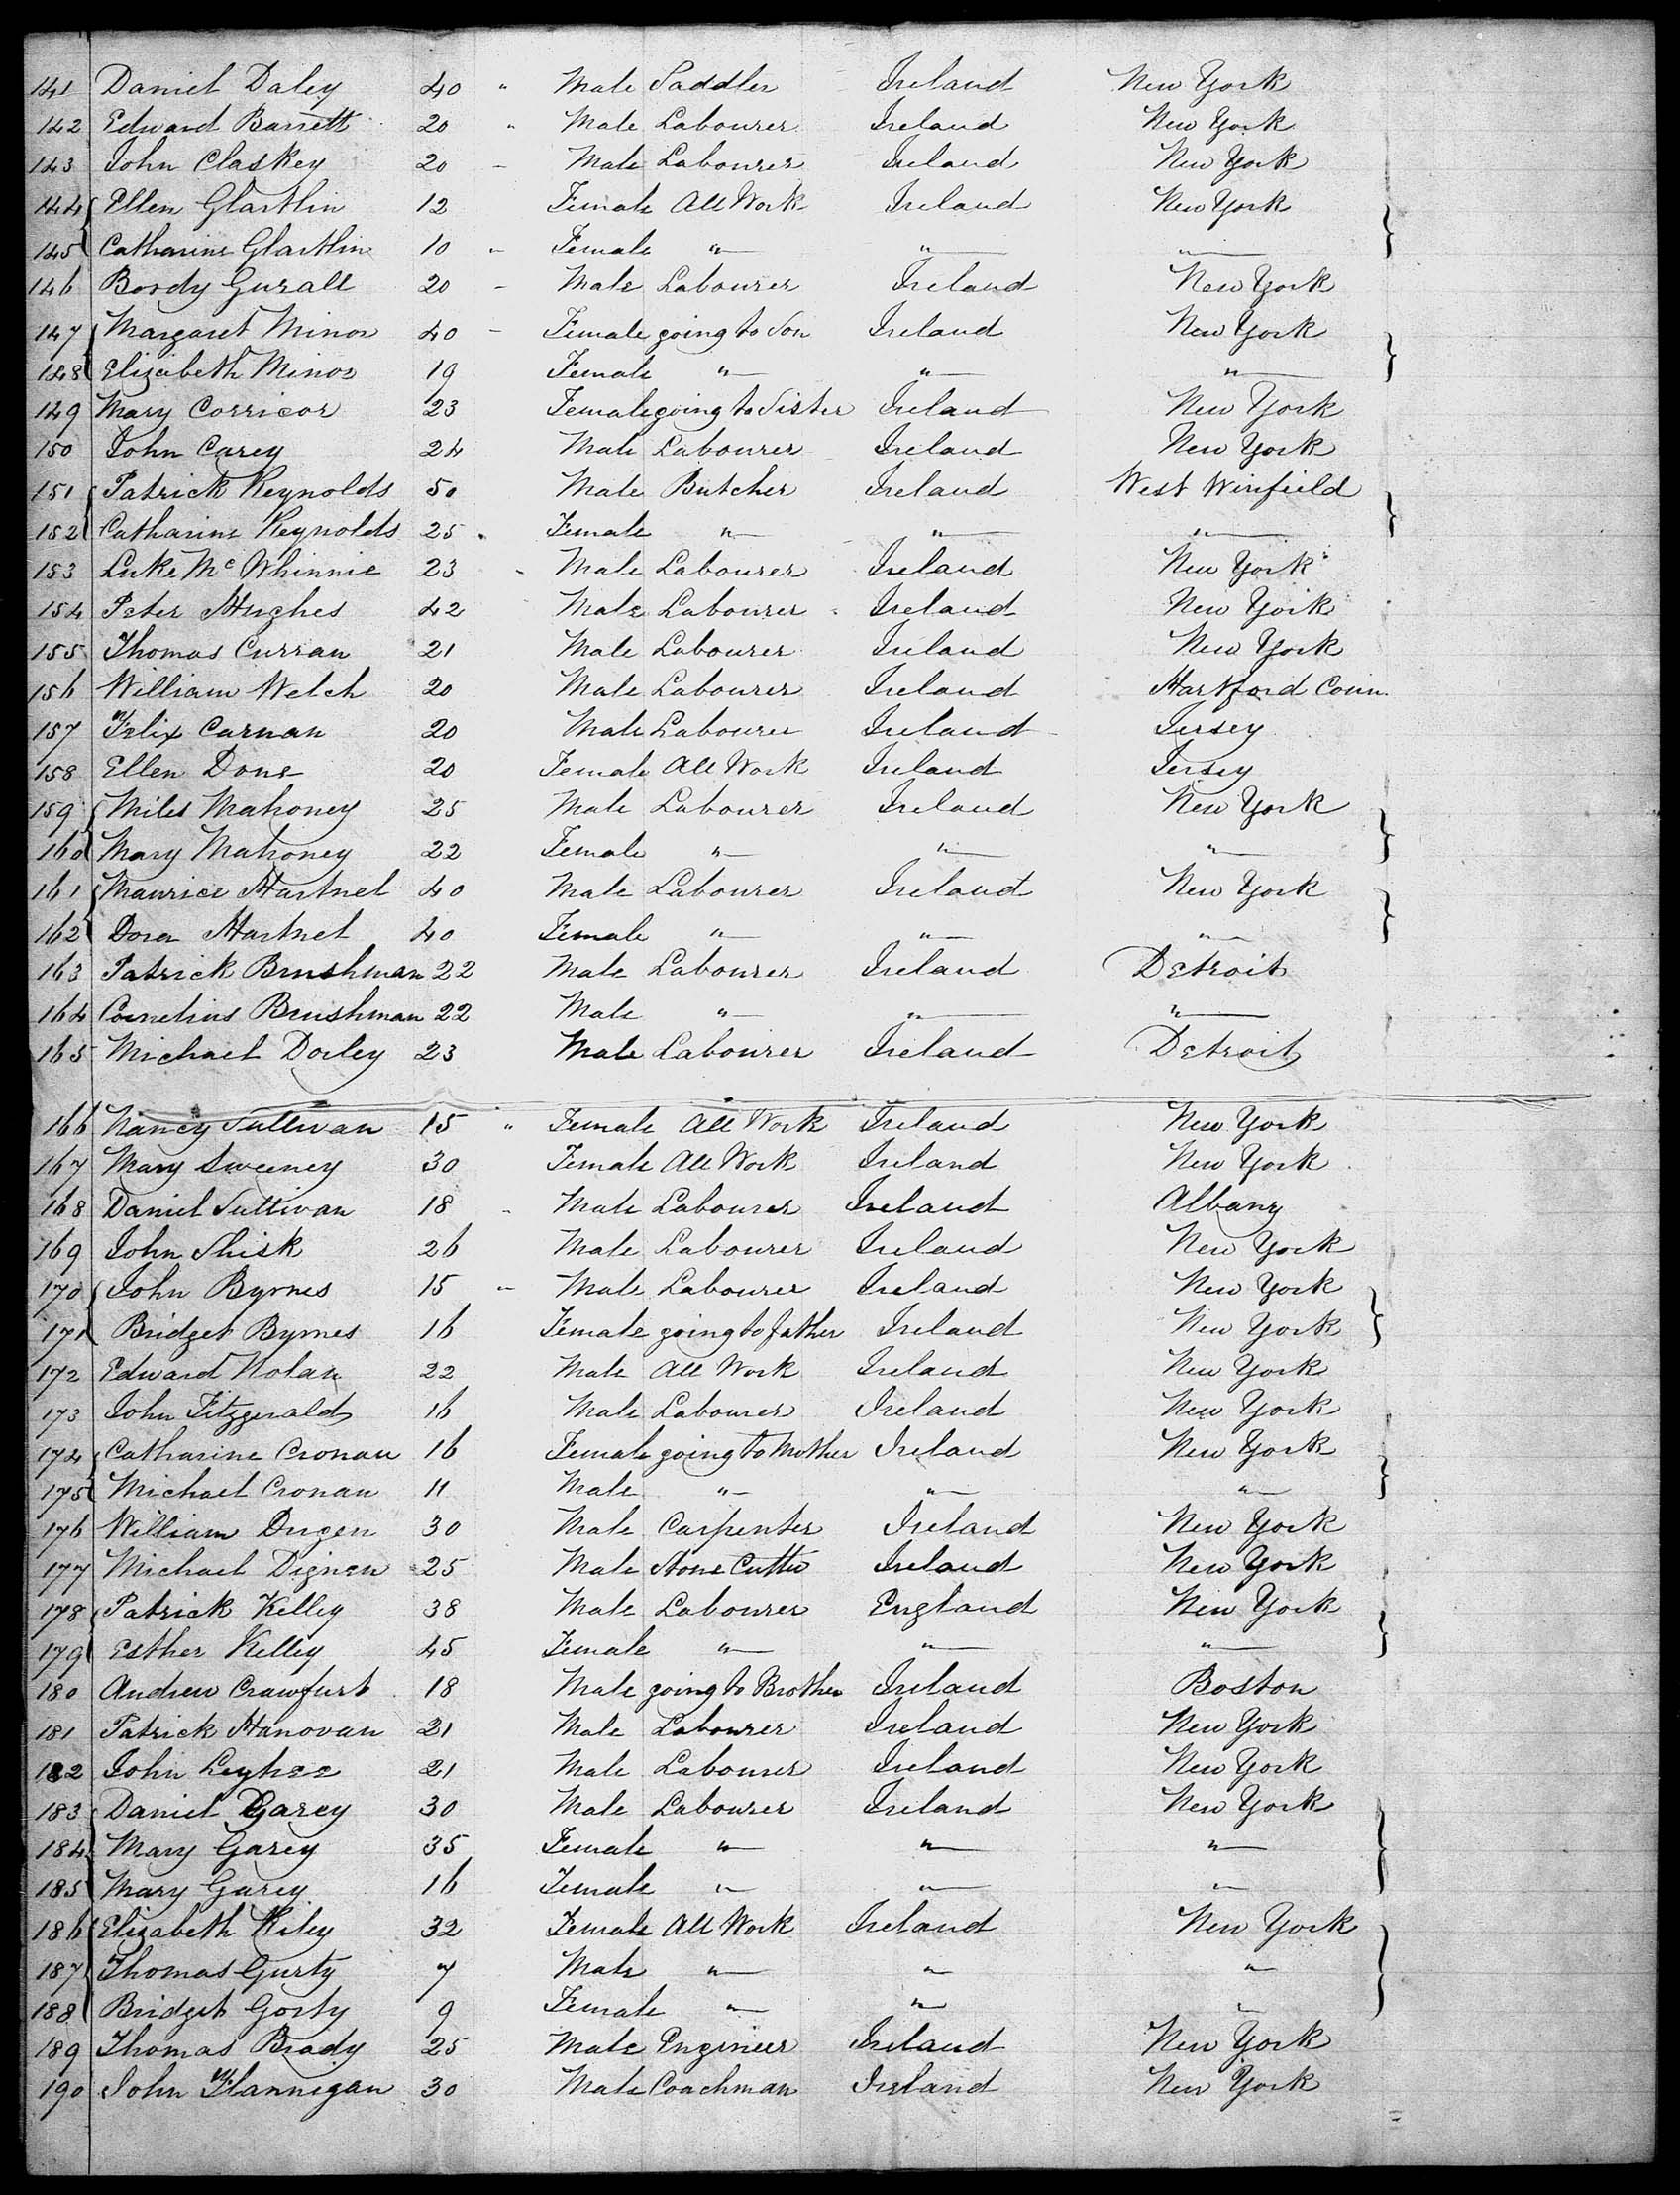 141 Daniel Daley 40 " Male Saddler Ireland New York
142 Edward Barrett 20 " Male Labourer Ireland New York
143 John Claskey 20 - Male Labourer Ireland New York
144 Ellen Glartlin 12 Female All Work Ireland New York
145 Catharine Glartlin 10 - Female " " "
146 Bordy Gurall 20 - Male Labourer Ireland New York
147 Margaret Minor 40 - Female going to Son Ireland New York
148 Elizabeth Minor 19 Female " " "
149 Mary Corricor 23 Female going to Sister Ireland New York
150 John Carey 24 Male Labourer Ireland New York
151 Patrick Reynolds 50 Male Butcher Ireland West Winfield
152 Catharine Reynolds 25 Female " " "
153 Luke McWhinnie 23 - Male Labourer Ireland New York
154 Peter Hughes 42 Male Labourer Ireland New York
155 Thomas Curran 21 Male Labourer Ireland New York
156 William Welch 20 Male Labourer Ireland Hartford Conn.
157 Felix Carnan 20 Male Labourer Ireland Jersey
158 Ellen Done 20 Female All Work Ireland Jersey
159 Miles Mahoney 25 Male Labourer Ireland New York
160 Mary Mahoney 22 Female " " "
161 Maurice Hartnet 40 Male Labourer Ireland New York
162 Dora Hartnet 40 Female " " "
163 Patrick Brushman 22 Male Labourer Ireland Detroit
164 Cornelius Brushman 22 Male " " "
165 Michael Dorley 23 Male Labourer Ireland Detroit
166 Nancy Sullivan 15 " Female All Work Ireland New York
167 Mary Sweeney 30 Female All Work Ireland New York
168 Daniel Sullivan 18 Male Labourer Ireland Albany
169 John Shisk 26 Male Labourer Ireland New York
170 John Byrnes 15 - Male Labourer Ireland New York
171 Bridget Byrnes 16 Female going to father Ireland New York
172 Edward Nolan 22 Male All Work Ireland New York
173 John Fitzgerald 16 Male Labourer Ireland New York
174 Catharine Cronan 16 Female going to Mother Ireland New York
175 Michael Cronan 11 Male " " "
176 William Dugen 30 Male Carpenter Ireland New York
177 Michael Dignen 25 Male Stone Cutter Ireland New York
178 Patrick Kelley 38 Male Labourer England New York
179 Esther Kelley 45 Female " " "
180 Andrew Crawfurt 18 Male going to Brother Ireland Boston
181 Patrick Hanovan 21 Male Labourer Ireland New York
182 John Leyhee 21 Male Labourer Ireland New York
183 Daniel Garey 30 Male Labourer Ireland New York
184 Mary Garey 35 Female " " "
185 Mary Garey 16 Female " " "
186 Elizabeth Kiley 32 Female All Work Ireland New York
187 Thomas Gurty 7 Male " " "
188 Bridget Gorty 9 Female " " "
189 Thomas Brady 25 Male Engineer Ireland New York
190 John Flannegan 30 Male Coachman Ireland New York